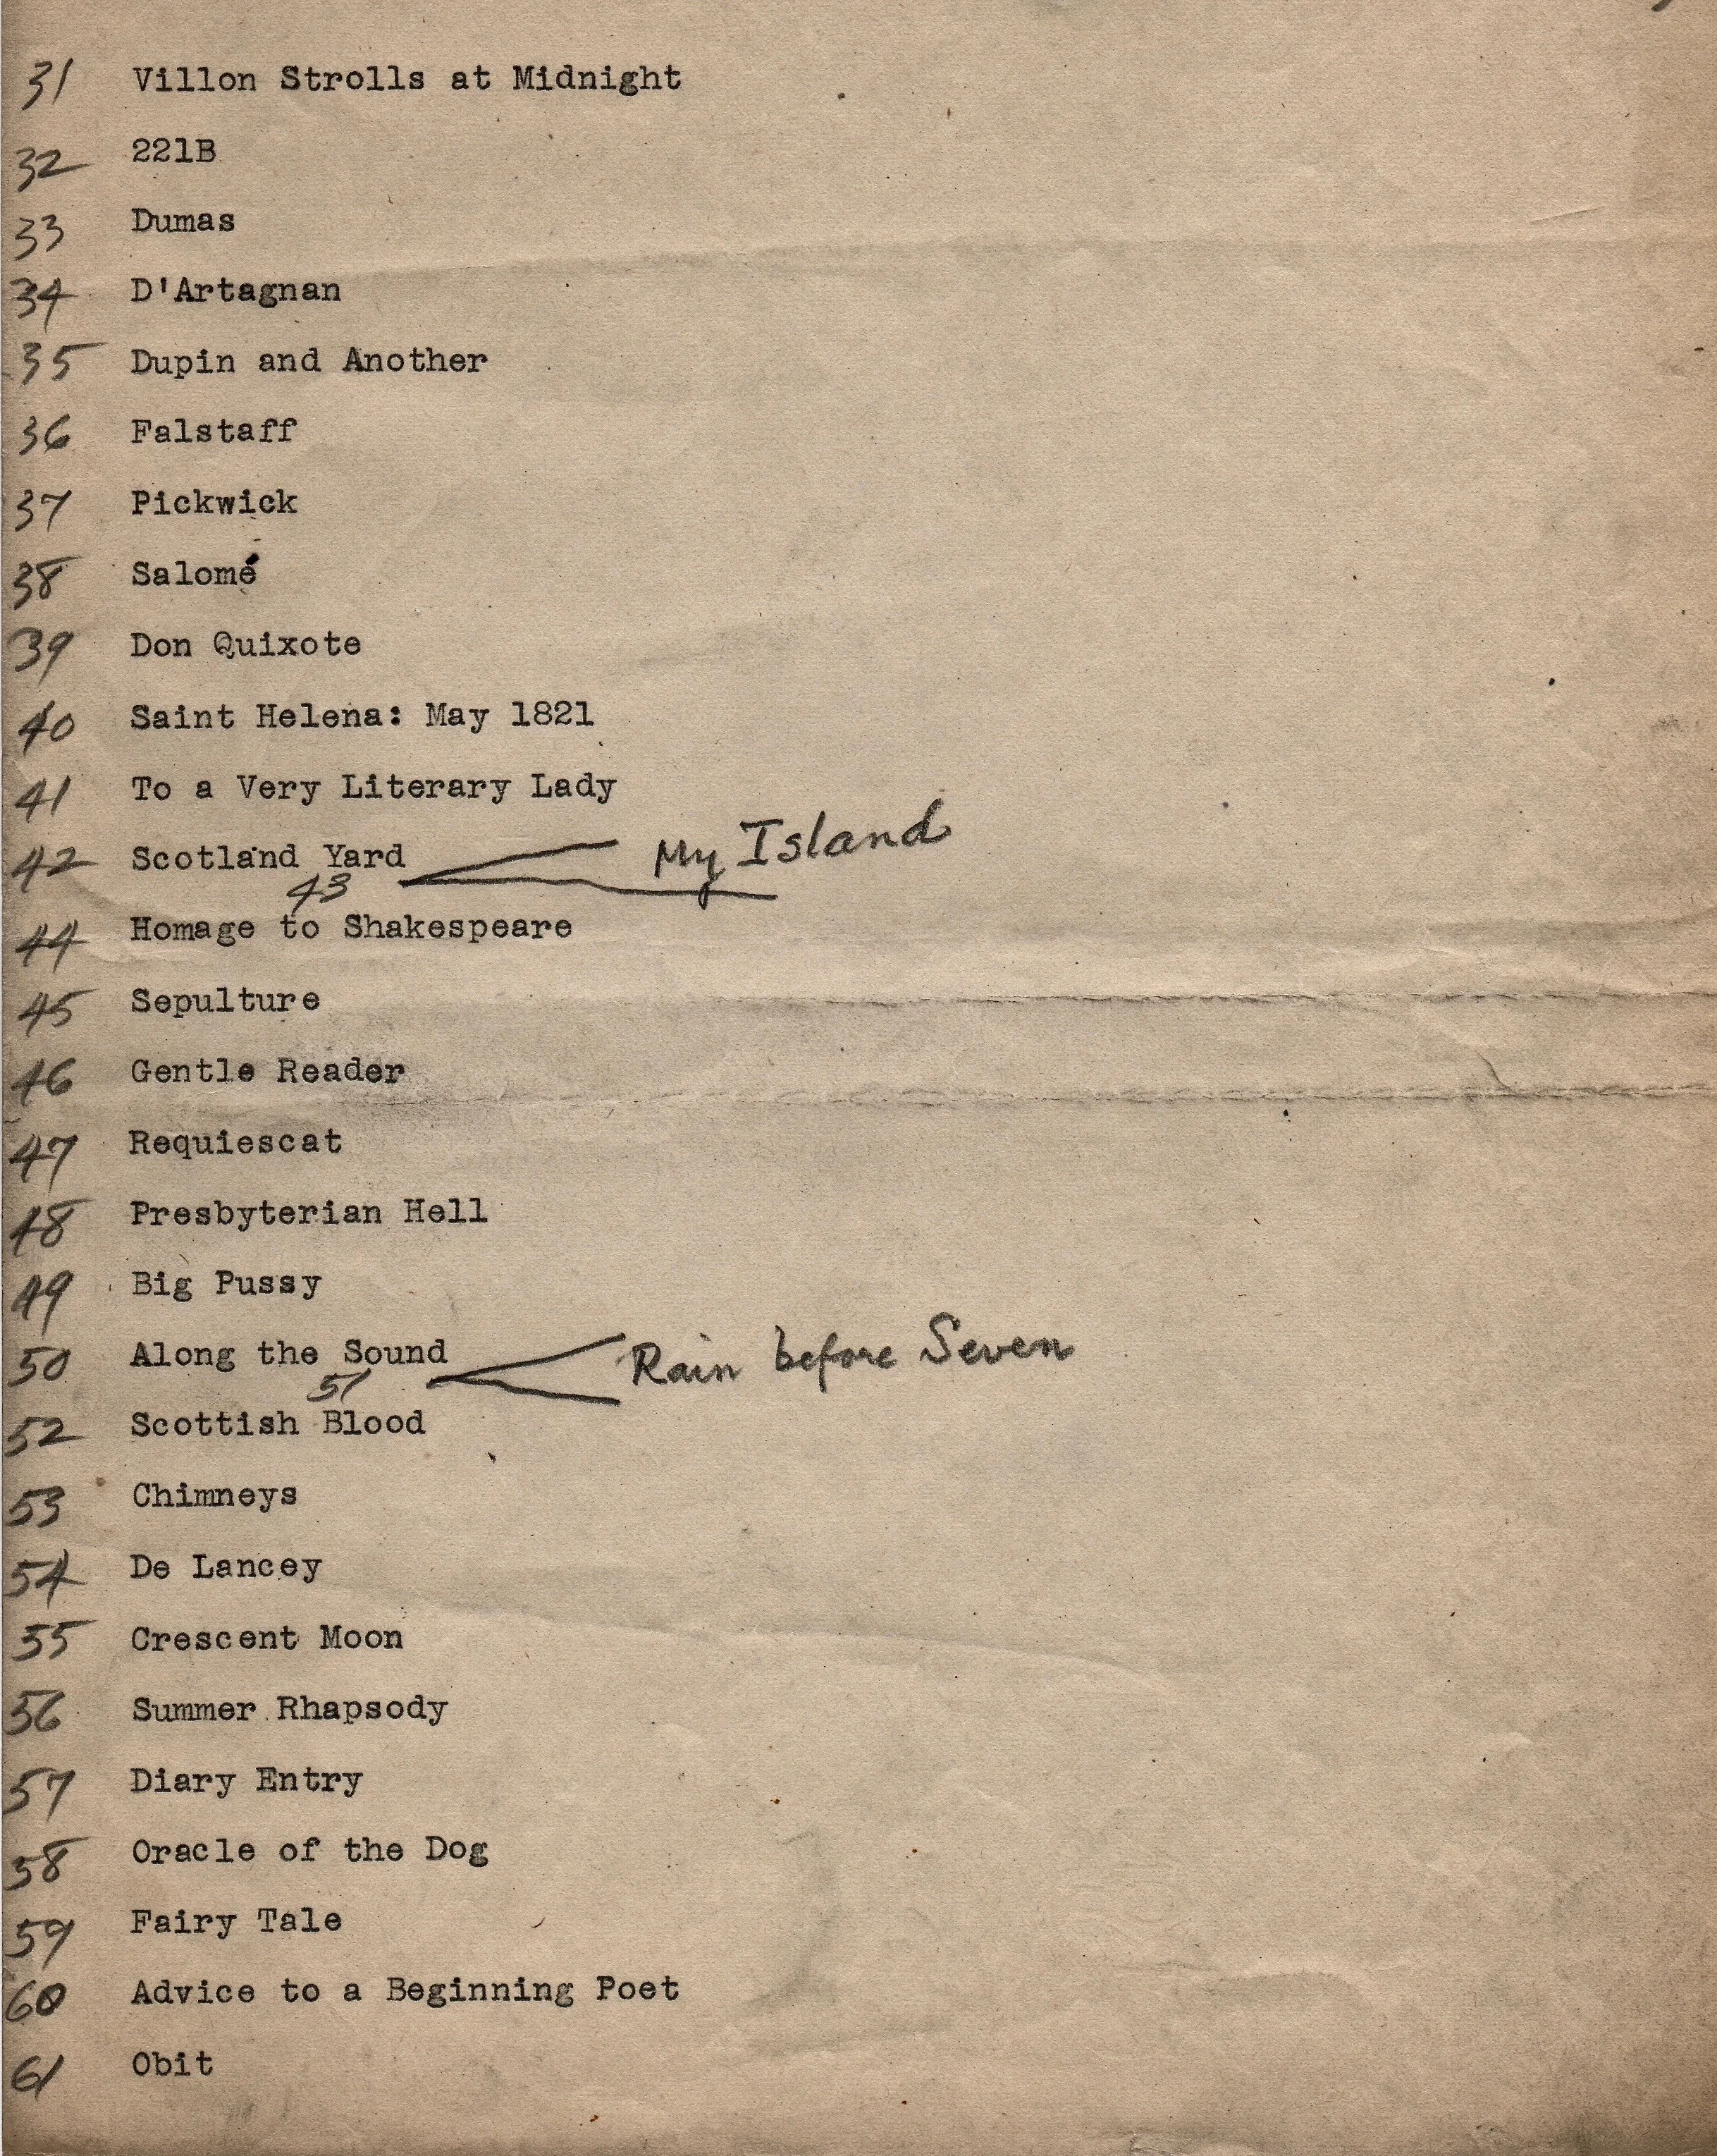 31 Villon Strolls at Midnight
32 221B
33 Dumas
34 D'Artagnan
35 Dupin and Another
36 Falstaff
37 Pickwick
38 Salomé
39 Don Quixote
40 Saint Helena: May 1821
41 To a Very Literary Lady
42 Scotland Yard
43 My Island
44 Homage to Shakespeare
45 Sepulture
46 Gentle Reader
47 Requiescat
48 Presbyterian Hell
49 Big Pussy
50 Along the Sound
51 Rain before Seven
52 Scottish Blood
53 Chimneys
54 De Lancey
55 Crescent Moon
56 Summer Rhapsody
57 Diary Entry
58 Oracle of the Dog
59 Fairy Tale
60 Advice to a Beginning Poet
61 Obit